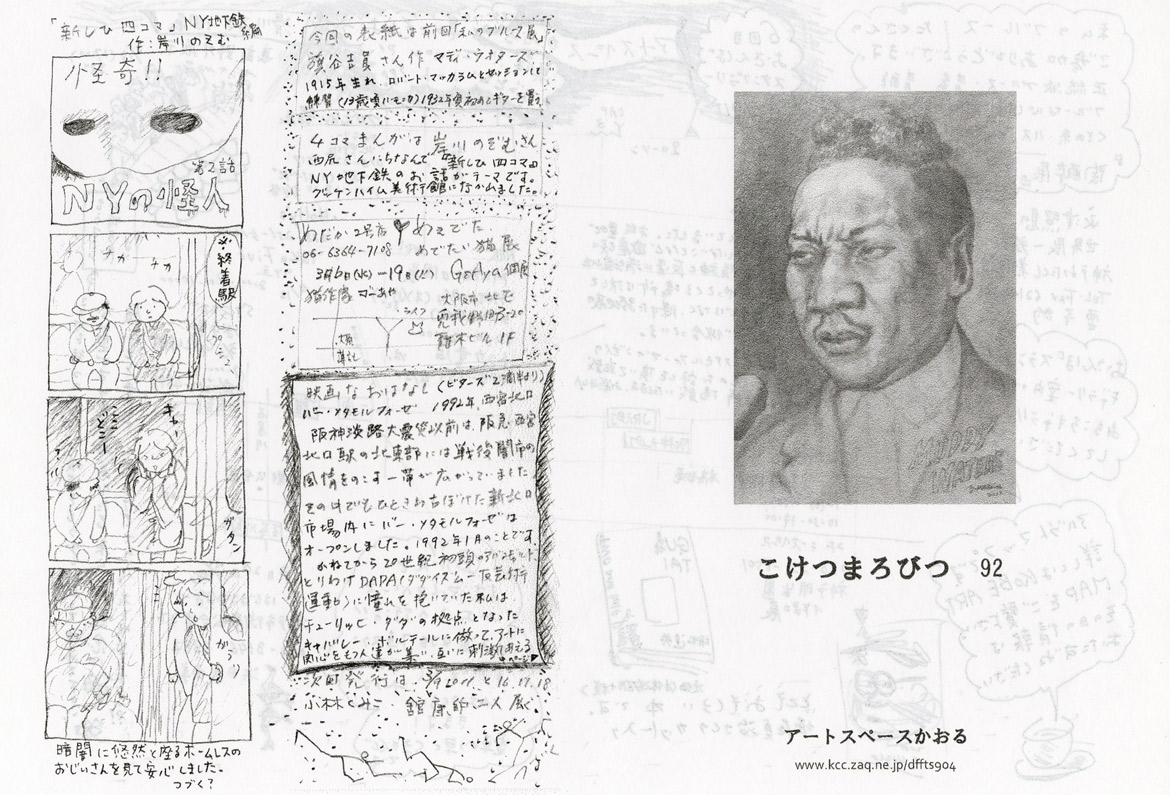 「新しひ四コマ」NY地下鉄編
作:岸川のぞむ
怪奇!!
第2話
NYの怪人
※終着駅
ナガナガ
プシュー
キャー
ガタン
がらり
暗闇に悠然と座るホームレスの
おじいさんを見て安心しました。
つづく?
今回の表紙は前回「私のブルース展
さん作 マディ・ウオターズ
1915年生れ、ロバート・マッカラムとセッションして
練習(13歳頃ハーモニカ)1932年頃初めてギターを買う
4コマまんがは岸川のぞむさん
西尻さんいちなんで"新しひ四コマ"
NY地下鉄のお話がテーマです。
グッケンハイム美術館になが山ました。
わだか2号店♥めでた
06-6364-7108 めでたい猫展
3月6日(火)ー19日(火) Goriya個展
猫作家 ごーあや
大阪市北区
ライフ
3-20
ビル1F
映画なおはなし(ビターズ2
バー・メタモルフォーゼ 1992年、西宮北口
阪神淡路大震災以前は、阪急西宮
北口駅の北東部には戦後闇市の
風情をのこす一帯が広がっていました。
その中でもひときわ古ぼけた新北口
市場内にバー・メタモルフォーゼは
オープンしました。1992年1月のことです。
かねてから20世紀初頭の
とりわけDADA(ダダイズムー反芸術
運動)に憧れを抱いていた私は、
チューリッヒ・ダダの拠点となった
キャバレー・ボルテールに倣って、アートに
関心をもつ人達が集い、互いに刺激しあえる
次回発行は、
小林くみこ・舘 二人展
MUDDY
WATERS
こけつまろびつ 92
アートスペースかおる
www.kcc.zaq.ne.jp/dffts904